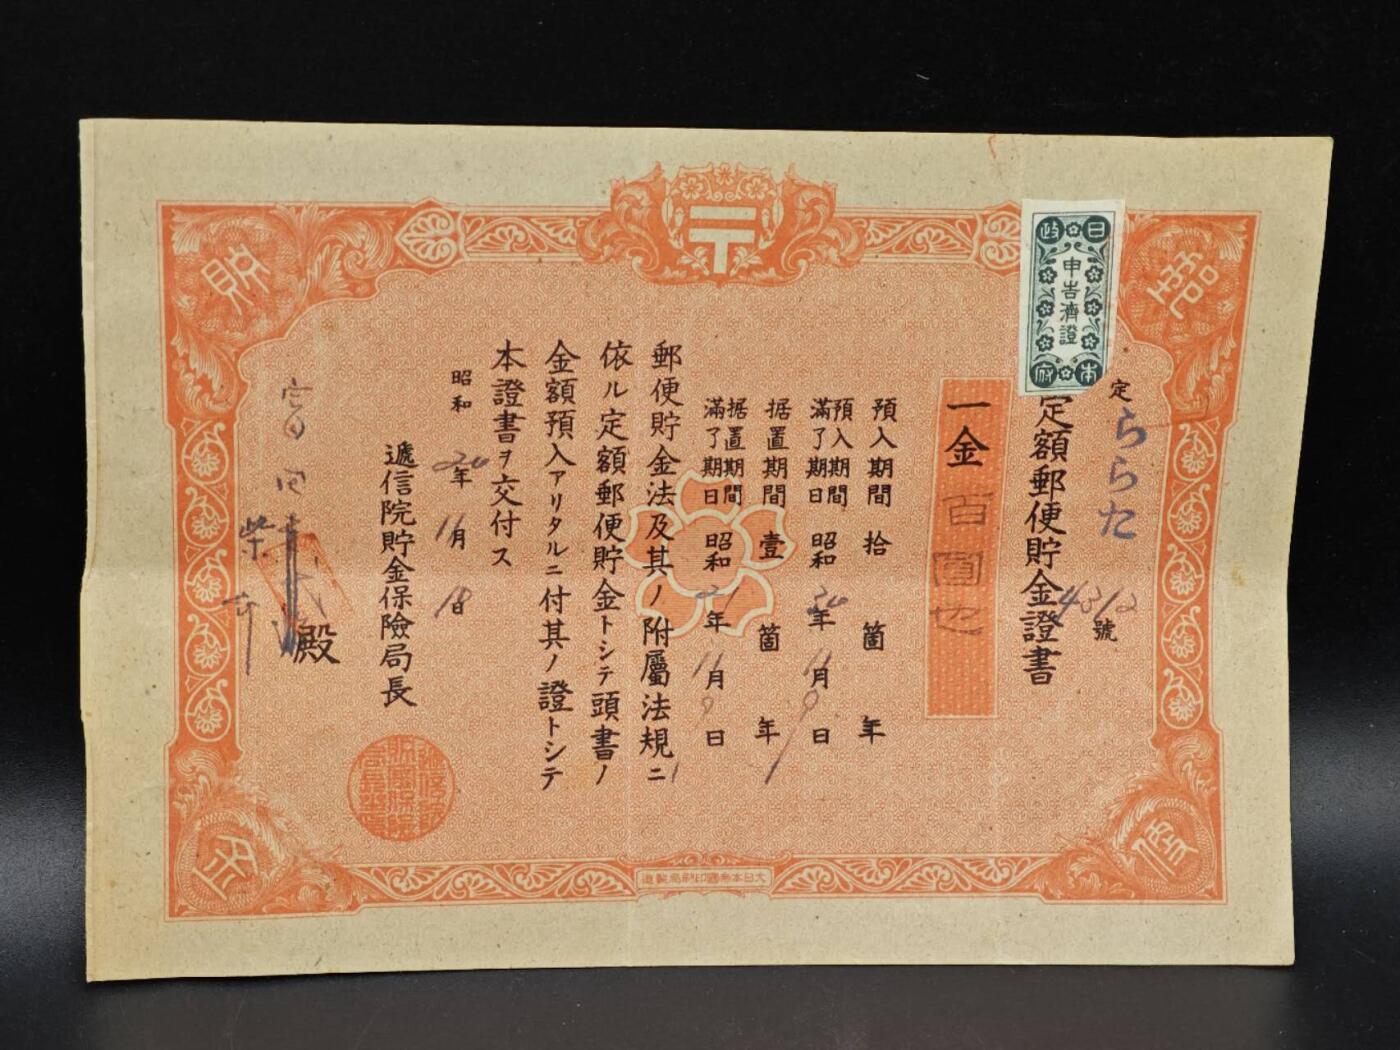 日本政府
申告濟證
定 ららた 4312 號
定額郵便貯金證書
一金 百圓也
預入期間 拾箇年
預入期間滿了期日 昭和 30年 11月 9日
据置期間 壹箇年
据置期間滿了期日 昭和 21年 11月 9日
郵便貯金法及其ノ附屬法規ニ
依ル定額郵便貯金トシテ頭書ノ
金額預入アリタルニ付其ノ證トシテ
本證書ヲ交付ス
昭和 20年 11月 18日
遞信院貯金保險局長
殿
郵便
貯金
〒
大日本帝國印刷局製造